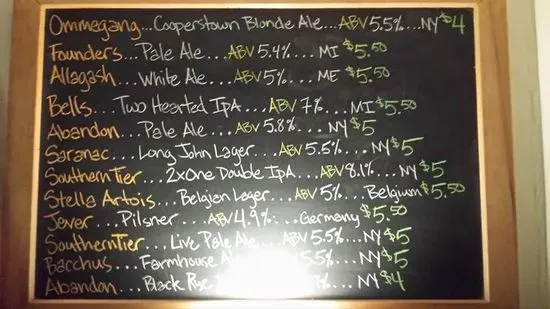 Ommegang...Cooperstown Blonde Ale...ABV 5.5%...NY $4
Founders...Pale Ale...ABV 5.4%...MI $5.50
Allagash...White Ale...ABV 5%...ME $5.50
Bells...Two Hearted IPA...ABV 7%...MI $5.50
Abandon...Pale Ale...ABV 5.8%...NY $5
Saranac....Long John Lager...ABV 5.5%...NY $5
Southern Tier...2xOne Double IPA...ABV 8.1%...NY $5
Stella Artois...Belgien Lager...ABV 5%...Belgium $5.50
Jever...Pilsner...ABV 4.9%...Germany $5.50
Southern Tier...Live Pale Ale...ABV 5.5%...NY $5
Bacchus...Farmhouse 5.5%...NY $5
Abandon...Black Rye %...NY $4